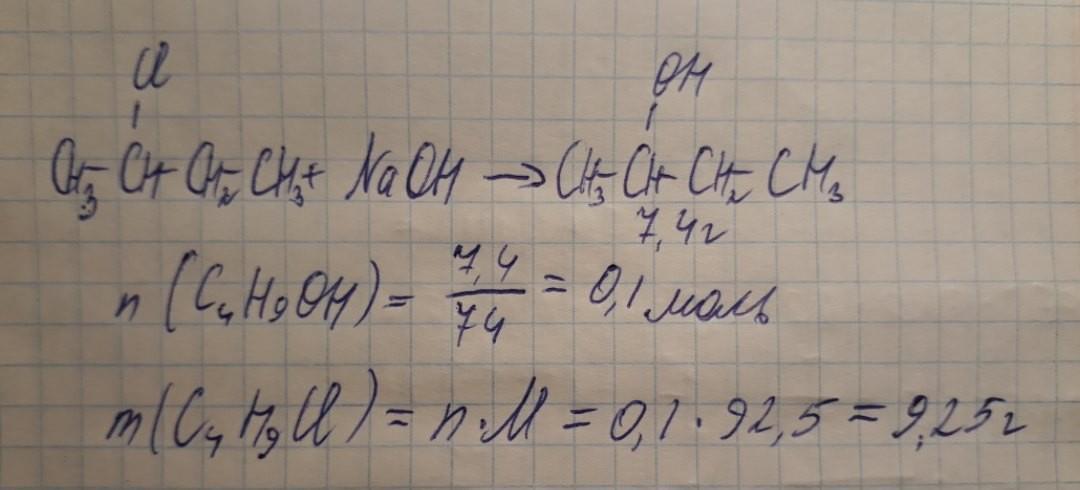 Cl OH
CH₃-CH-CH₂-CH₃+ NaOH → CH₃-CH-CH₂-CH₃
7,4г
n (C₄H₉OH) = 7,4/74 = 0,1 моль
m(C₄H₉Cl) = n·M = 0,1·92,5 = 9,25г